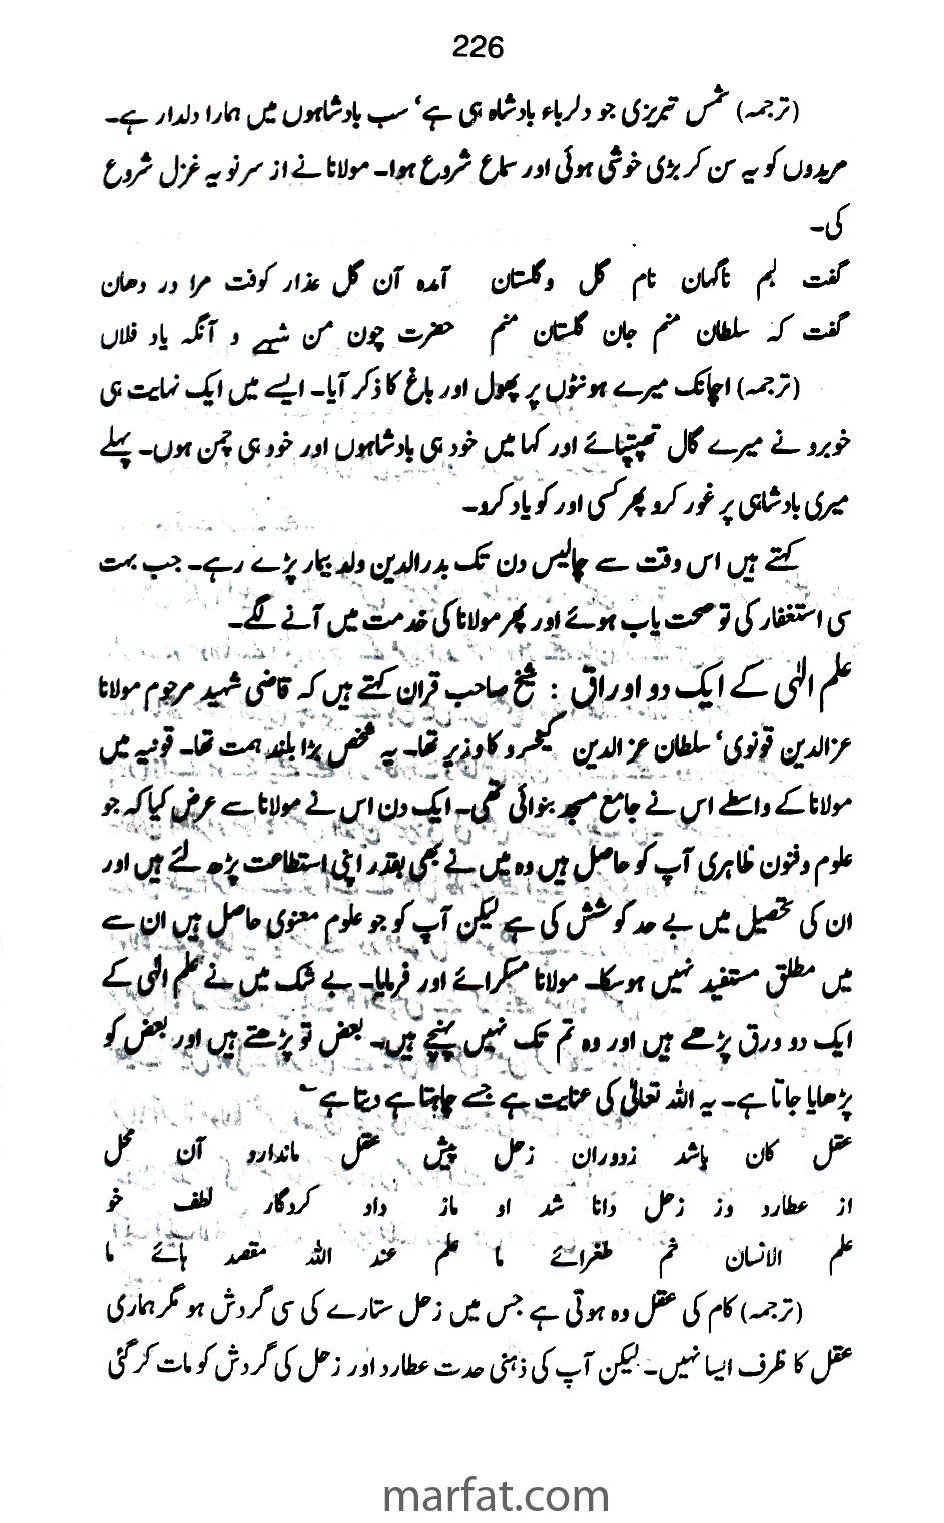 226
(ترجمہ) شمس تبریزی جو دلرباء بادشاہ ہی ہے، سب بادشاہوں میں ہمارا دلدار ہے۔
مریدوں کو یہ سن کر بڑی خوشی ہوئی اور سماع شروع ہوا۔ مولانا نے از سر نو یہ غزل شروع
کی۔
گفت لبم ناگہان نام گل و گلستان آمدہ آن گل عذار کوفت مرا در دھان
گفت کہ سلطان منم جان گلستان منم حضرت چون من شہے و آنگہ یاد فلاں
(ترجمہ) اچانک میرے ہونٹوں پر پھول اور باغ کا ذکر آیا۔ ایسے میں ایک نہایت ہی
خوبرو نے میرے گال تھپتپائے اور کہا میں خود ہی بادشاہوں اور خود ہی چمن ہوں۔ پہلے
میری بادشاہی پر غور کرو پھر کسی اور کو یاد کرو۔
کہتے ہیں اس وقت سے چالیس دن تک بدرالدین ولد بیمار پڑے رہے۔ جب بہت
سی استغفار کی تو صحت یاب ہوئے اور پھر مولانا کی خدمت میں آنے لگے۔
علم الٰہی کے ایک دو اوراق : شیخ صاحب قران کہتے ہیں کہ قاضی شہید مرحوم مولانا
عزالدین قونوی، سلطان عزالدین کیخسرو کا وزیر تھا۔ یہ شخص بڑا بلند ہمت تھا۔ قونیہ میں
مولانا کے واسطے اس نے جامع مسجد بنوائی تھی۔ ایک دن اس نے مولانا سے عرض کیا کہ جو
علوم و فنون ظاہری آپ کو حاصل ہیں وہ میں نے بھی بقدر اپنی استطاعت پڑھ لئے ہیں اور
ان کی تحصیل میں بے حد کوشش کی ہے لیکن آپ کو جو علوم معنوی حاصل ہیں ان سے
میں مطلق مستفید نہیں ہو سکا۔ مولانا مسکرائے اور فرمایا۔ بے شک میں نے علم الٰہی کے
ایک دو ورق پڑھے ہیں اور وہ تم تک نہیں پہنچے ہیں۔ بعض تو پڑھتے ہیں اور بعض کو
پڑھایا جاتا ہے۔ یہ اللہ تعالیٰ کی عنایت ہے جسے چاہتا ہے دیتا ہے
عقل کان باشد زدوران زحل پیش عقل ماندارو آن محل
از عطارد وز زحل دانا شد او ماز داد کردگار لطف خو
علم الانسان خم طغرائے ما علم عند اللہ مقصد ہائے ما
(ترجمہ) کام کی عقل وہ ہوتی ہے جس میں زحل ستارے کی سی گردش ہو مگر ہماری
عقل کا ظرف ایسا نہیں۔ لیکن آپ کی ذہنی حدت عطارد اور زحل کی گردش کو مات کر گئی
marfat.com